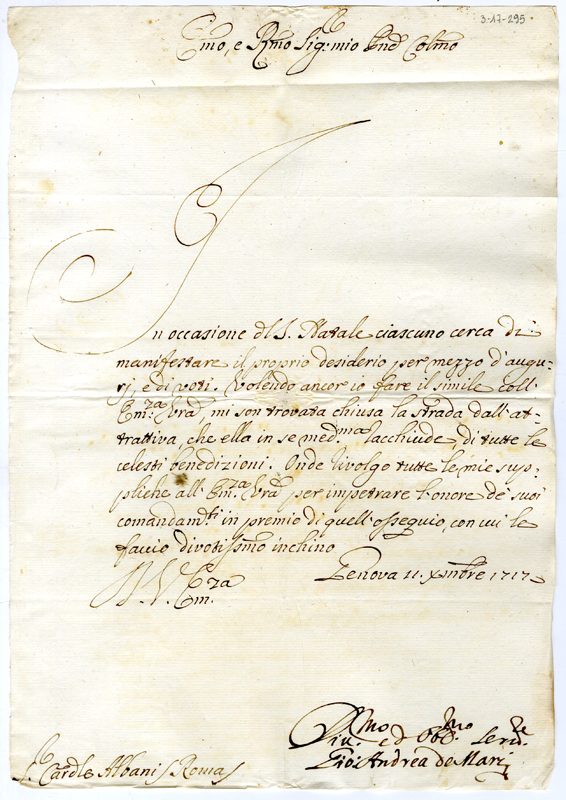 3-17-295
Emo, e Rmo Sig: mio Pnē Colmo
In occasione del S. Natale ciascuno cerca di
manifestare il proprio desiderio per mezzo d'augu-
rj, e di voti. Volendo ancor io fare il simile coll'
Em:za Vrā mi son trovata chiusa la strada dall'at-
trattiva, che ella in se med:ma racchiude di tutte le
celesti benedizioni. Onde rivolgo tutte le mie sup-
pliche all'Em:za Vrā per impetrare l'onore de suoi
comandam:ti in premio di quell'ossequio, con cui le
faccio divotissimo inchino
Genova 11. Xmbre 1717
V. Em.za
Div:mo ed Obb:mo Serv:re
Gio: Andrea de Mari
Cardle Albani Roma